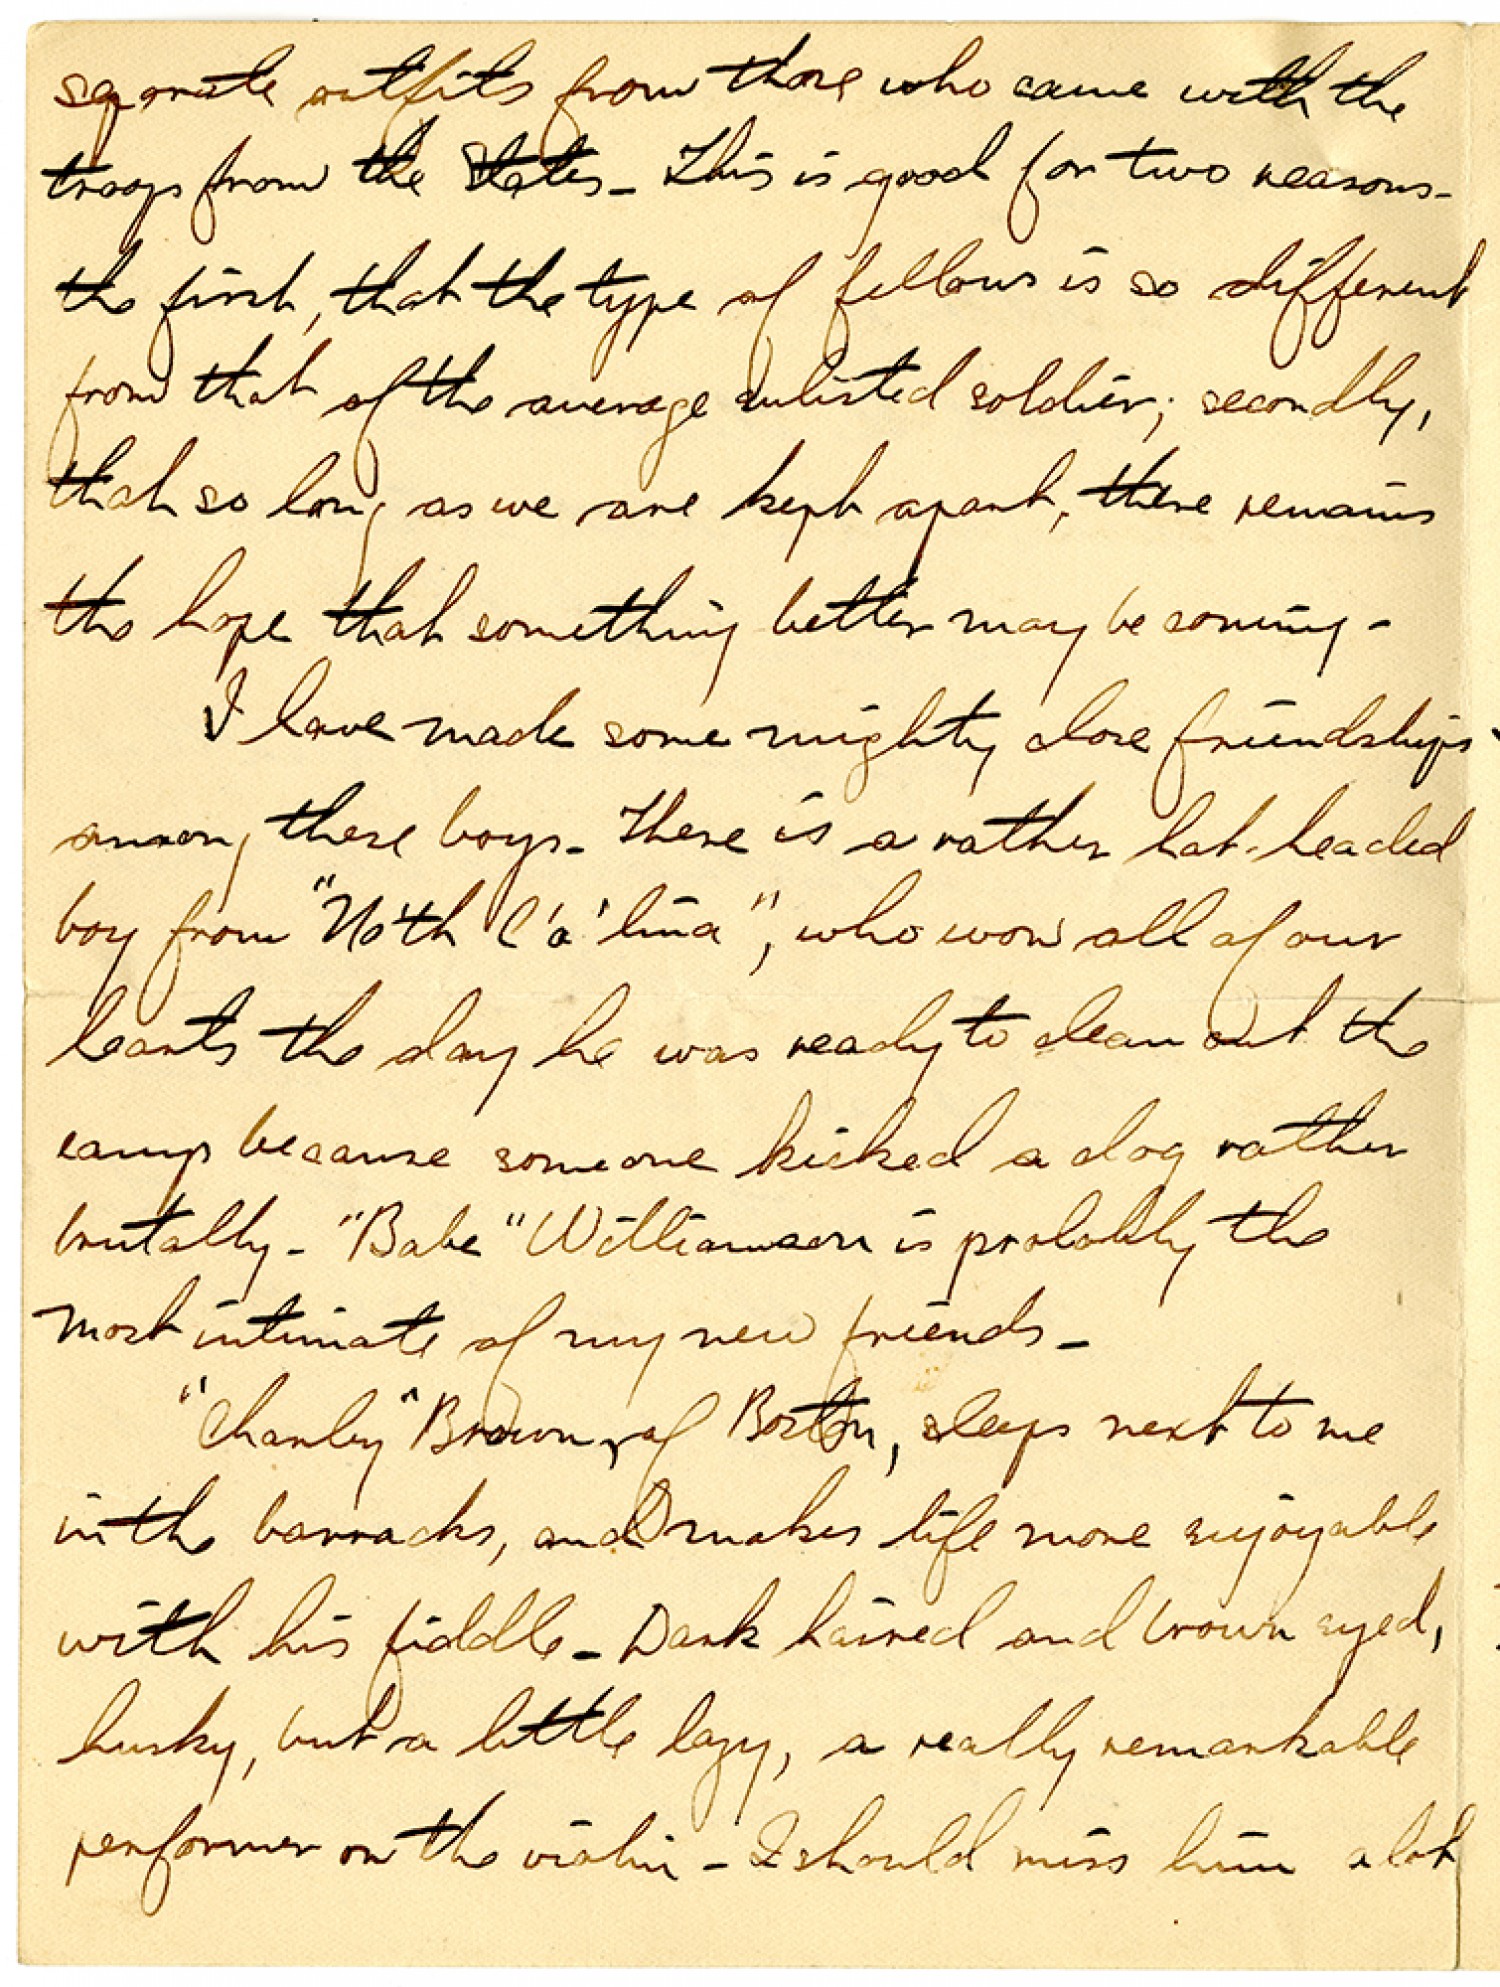 separate outfits from those who came with the
troops from the States - This is good for two reasons -
the first, that the type of fellows is so different
from that of the average enlisted soldier; secondly,
that so long as we are kept apart, there remains
the hope that something better may be coming -
I have made some mighty close friendships
among these boys - There is a rather hot-headed
boy from "No'th C'a'lina", who won all of our
hearts the day he was ready to clean out the
camp because someone kicked a dog rather
brutally - "Babe" Williamson is probably the
most intimate of my new friends -
"Charley" Brown, of Boston, sleeps next to me
in the barracks, and makes life more enjoyable
with his fiddle - Dark haired and brown eyed,
husky, but a little lazy, a really remarkable
performer on the violin - I should miss him a lot